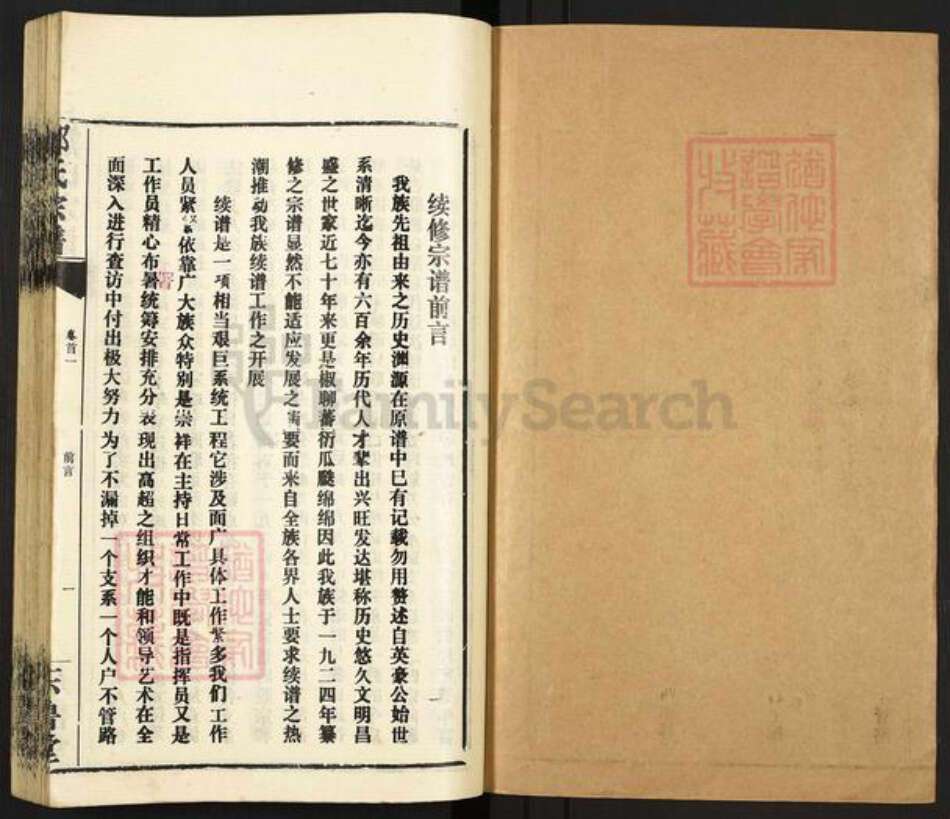 续修宗谱前言
我族先祖由来之历史渊源在原谱中已有记载勿用赘述自英豪公始世
系清晰迄今亦有六百余年历代人才辈出兴旺发达堪称历史悠久文明昌
盛之世家近七十年来更是椒聊蕃衍瓜瓞绵绵因此我族于一九二四年纂
修之宗谱显然不能适应发展之需要而来自全族各界人士要求续谱之热
潮推动我族续谱工作之开展
续谱是一项相当艰巨系统工程它涉及面广具体工作繁多我们工作
人员紧紧依靠广大族众特别是崇祥在主持日常工作中既是指挥员又是
工作员精心布暑统筹安排充分表现出高超之组织才能和领导艺术在全
面深入进行查访中付出极大努力为了不漏掉一个支系一个人户不管路
署
氏宗谱
卷首一
前言
一
FamilySearch
猶他家譜學會收藏
猶他家譜學會收藏